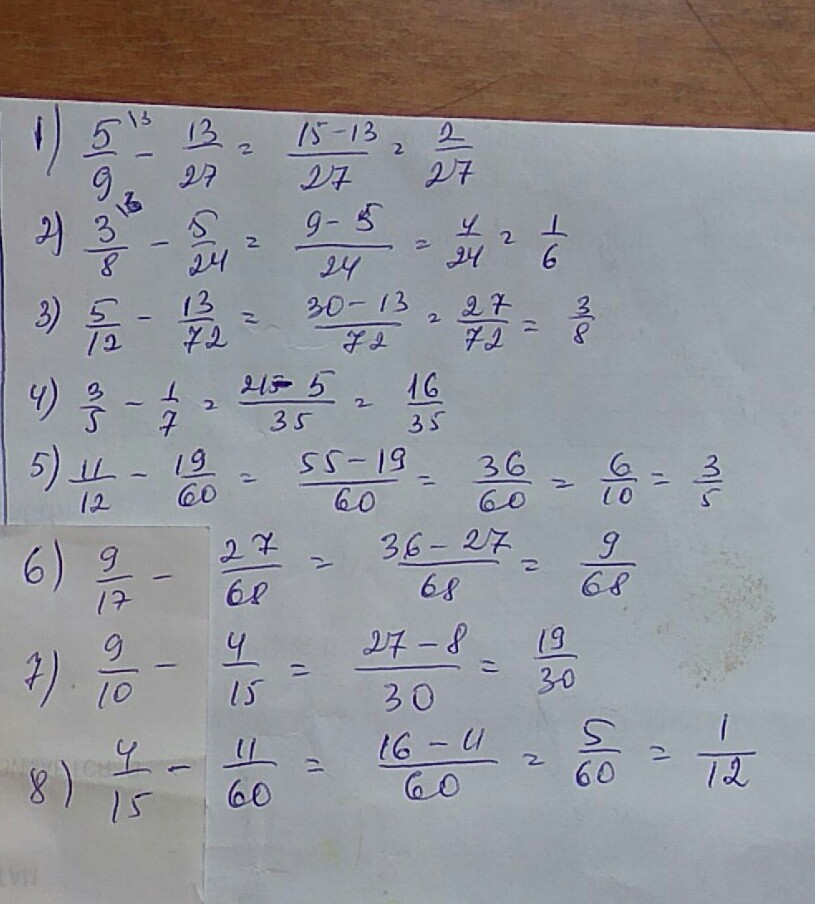 1) 5/9 \3 - 13/27 = 15-13/27 = 2/27
2) 3/8 \3 - 5/24 = 9-5/24 = 4/24 = 1/6
3) 5/12 - 13/72 = 30-13/72 = 27/72 = 3/8
4) 3/5 - 1/7 = 21-5/35 = 16/35
5) 11/12 - 19/60 = 55-19/60 = 36/60 = 6/10 = 3/5
6) 9/17 - 27/68 = 36-27/68 = 9/68
7) 9/10 - 4/15 = 27-8/30 = 19/30
8) 4/15 - 11/60 = 16-11/60 = 5/60 = 1/12